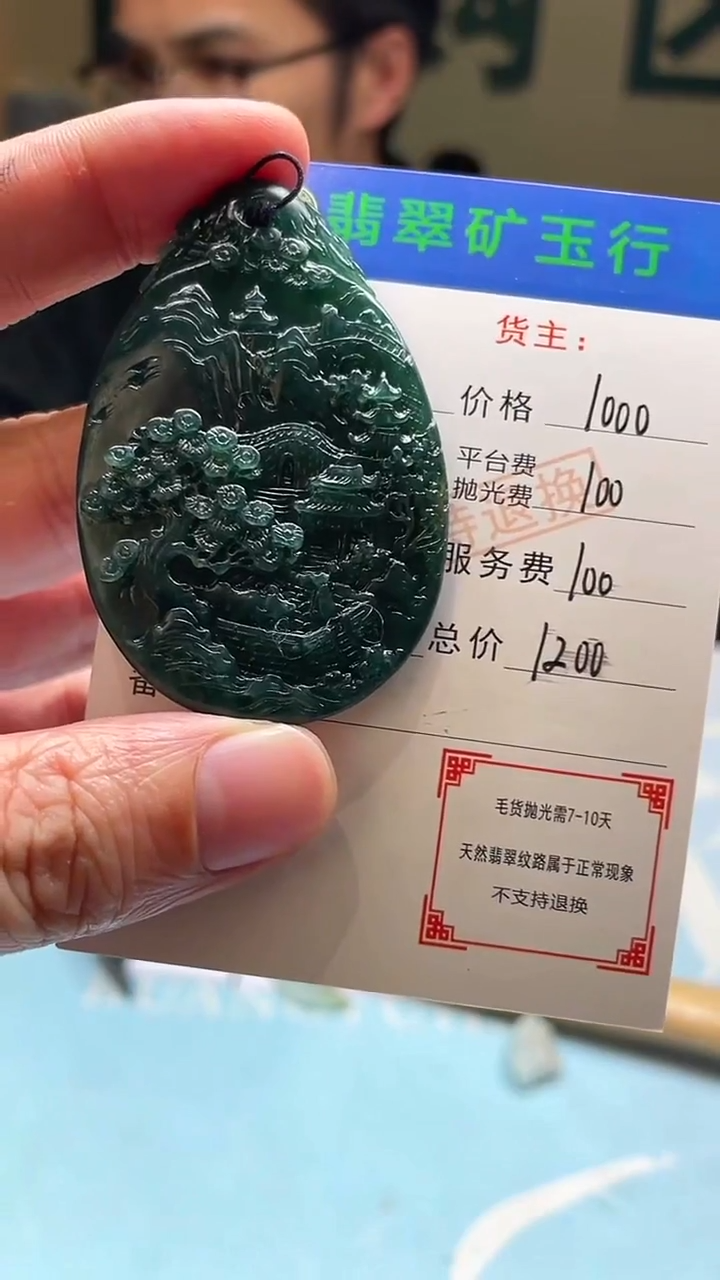 翡翠矿玉行
货主：
价格 1000
平台费
抛光费 100
服务费 100
总价 1200
备
持退换
毛货抛光需7-10天
天然翡翠纹路属于正常现象
不支持退换